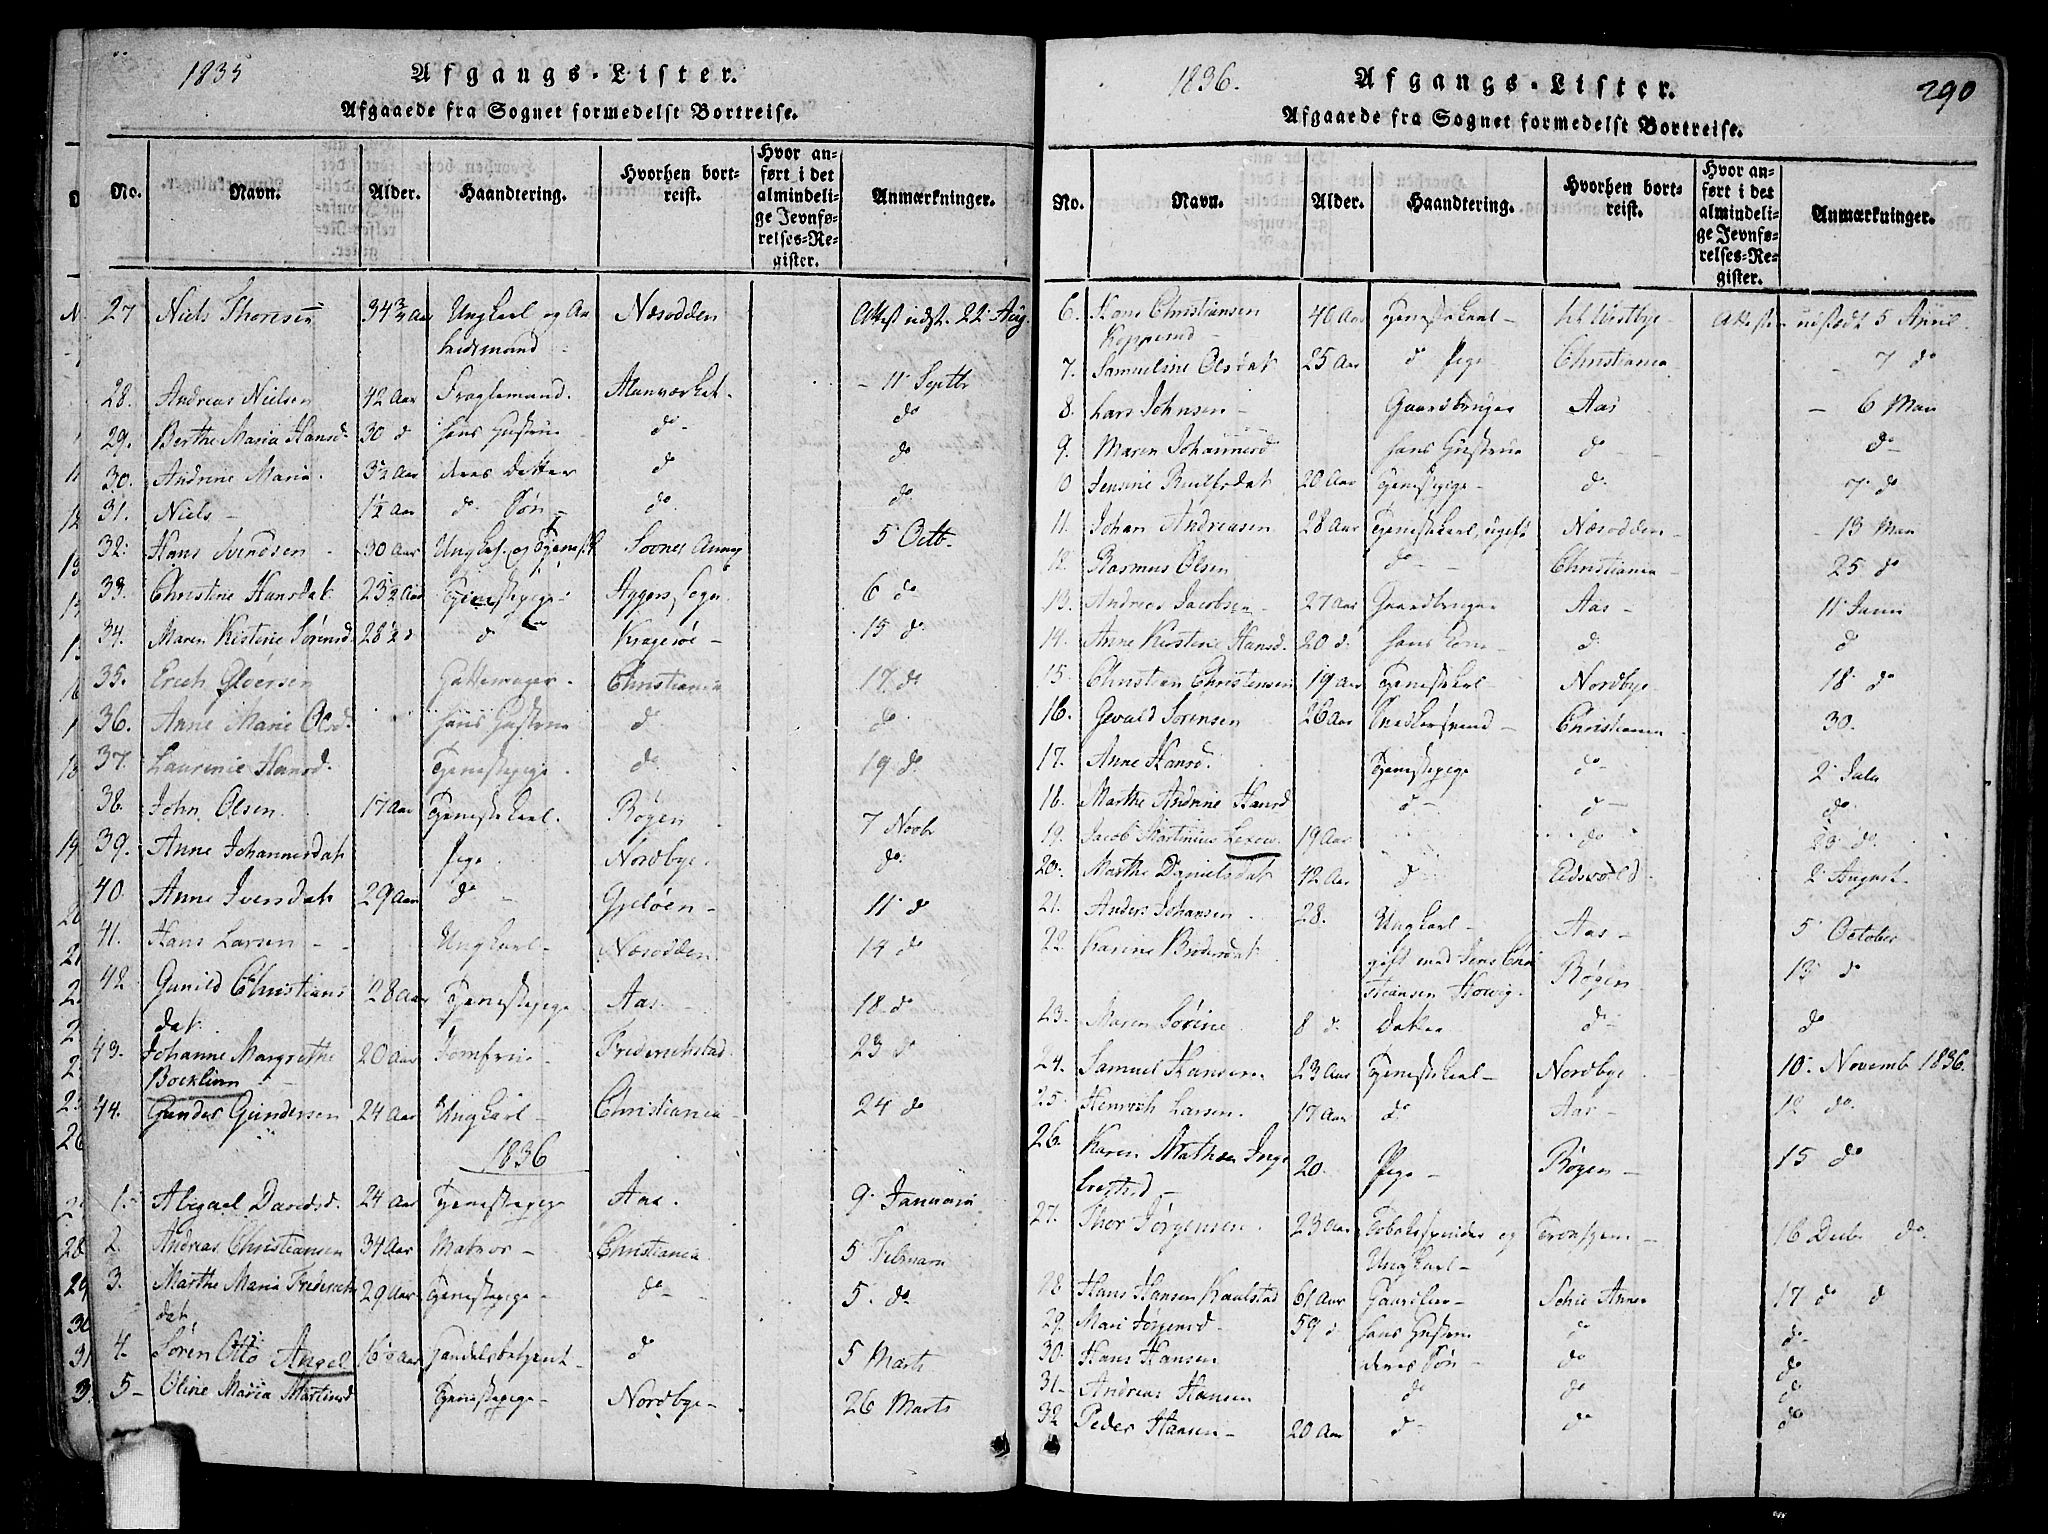 1835
Afgangs-Lister.
Afgaaede fra Sognet formedelst Bortreise.
No. Navn. Alder. Haandtering. Hvorhen bortreist. Hvor anført i det almindelige Jevnførelses-Register. Anmærkninger.
27 Niels Thoresen 34 3/4 Aar Ungkarl og Ar Næsodden Attest udst. 22 Aug.
beidsmand
28. Andreas Nielsen 42 Aar Alunværket. - 11 Septbr
29. Berthe Maria Hansd. 30 d hans Hustrue do do
30. Andrine Maria. 3 1/2 Aar deres Datter do do
31. Niels - 1 1/2 Aar do Søn - do do
32. Hans Svendsen 30 Aar Ungk. og Tjenestk Soones Annex 5 Octb.
33. Christine Hansdat 23 1/2 Aar Tjenestepige Aggers Sogn 6 do
34. Maren Kistine Sørensd. 28 1/2 d do Kragerøe - 15 do
35. Erich Christiania 17 do
36. Anne Marie Olsd. hans Hustrue do do
37. Laurenie Hansd. Tjenestepige do 19 do
38. John Olsen 17 Aar Tjenestekarl. Røgen 7 Novbr
39. Anne Johannesdat Pige Nordbye. do
40. Anne Iversdat 29 Aar do Gjeløen - 11 do
41. Hans Larsen - Ungkarl - Næsodden. 14 do
42 Gunild Christians 28 Aar Tjenestepige Aas 18 do
dat.
43. Johanne Margrethe 20 Aar Jomfrue Frederichstad. 23 do
44. Gunder Gundersen 24 Aar Ungkarl - Christiania 24 do
1836
1. Abigael Davidsd. 24 Aar Tjenestepige Aas. 9 Januari
2. Andreas Christiansen 34 Aar Matros - Christiania 5 Februari
3. Marthe Maria Frederichs 29 Aar Tjenestepige - do 5. do
dat.
4. Søren Otto Angel do 5 Marts
5 - Oline Maria Martinsd Tjenestepige - Nordbye - 26 Marts
1836.
Afgangs-Lister.
290
Afgaaede fra Sognet formedelst Bortreise.
No. Navn. Alder. Haandtering. Hvorhen bortreist. Hvor anført i det almindelige Jevnførelses-Register. Anmærkninger.
6. Hans Christiansen 40 Aar Tjenestekarl - til Westbye Attest udstædt 5 April.
Kopperud
7. Samueline Olsdat 25 Aar do Pige Christiania - 7 do
8. Lars Johnsen - Gaardbruger Aas - 6 Mai
9. Maren Johannesd hans Hustrue do do
0 Jensine 20 Aar Tjenestepige do 7 do
11. Johan Andreasen 28 Aar Tjenestekarl, ugift Næsodden - 13 Mai
12. Rasmus Olsen do Christiania - 25 do
13. Andreas Jacobsen 27 Aar Gaardbruger Aas - 11 Juni
14. Anne Kirstine Hansd. 20 d. hans Kone do do
15. Christian Christensen 19 Aar Tjenestekarl Nordbye 18 do
16. Gevald Sørensen 26 Aar Snedkersvend Christiania 30.
17. Anne Hansd. Tjenestepige do 2 Julu
18. Marthe Andrine Hansd do do do
19. Jacob Martinius 19 Aar do do.
20. Marthe Danielsdat 12 Aar do Eidsvold. 2 August
21. Anders Johansen 28. Ungkarl Aas - 5 October
22. Karene gift med Jens Chri Røgen 13 do
stiansen
23. Maren Sørine 8 d. Datter do do
24. Samuel Hansen 23 Aar Tjenestekarl - Nordbye 10. Novemb 1836.
25. Henrich Larsen. 17 Aar do Aas - 12 do.
26. Karen Mathea Inge 20. Pige - Røgen - 15 do
27. Thor Jørgensen. 23 Aar Tobaksspinder og 16 Decbr do
Ungkarl -
28 Hans Hansen 61 Aar Schie Annex 17 d d
29. Mari Jørgensd 59 d. hans Hustru do do
30. Hans Hansen deres Søn do do
31 - Andreas Hansen do do do
32 Peder Hansen - 20 Aar do do do